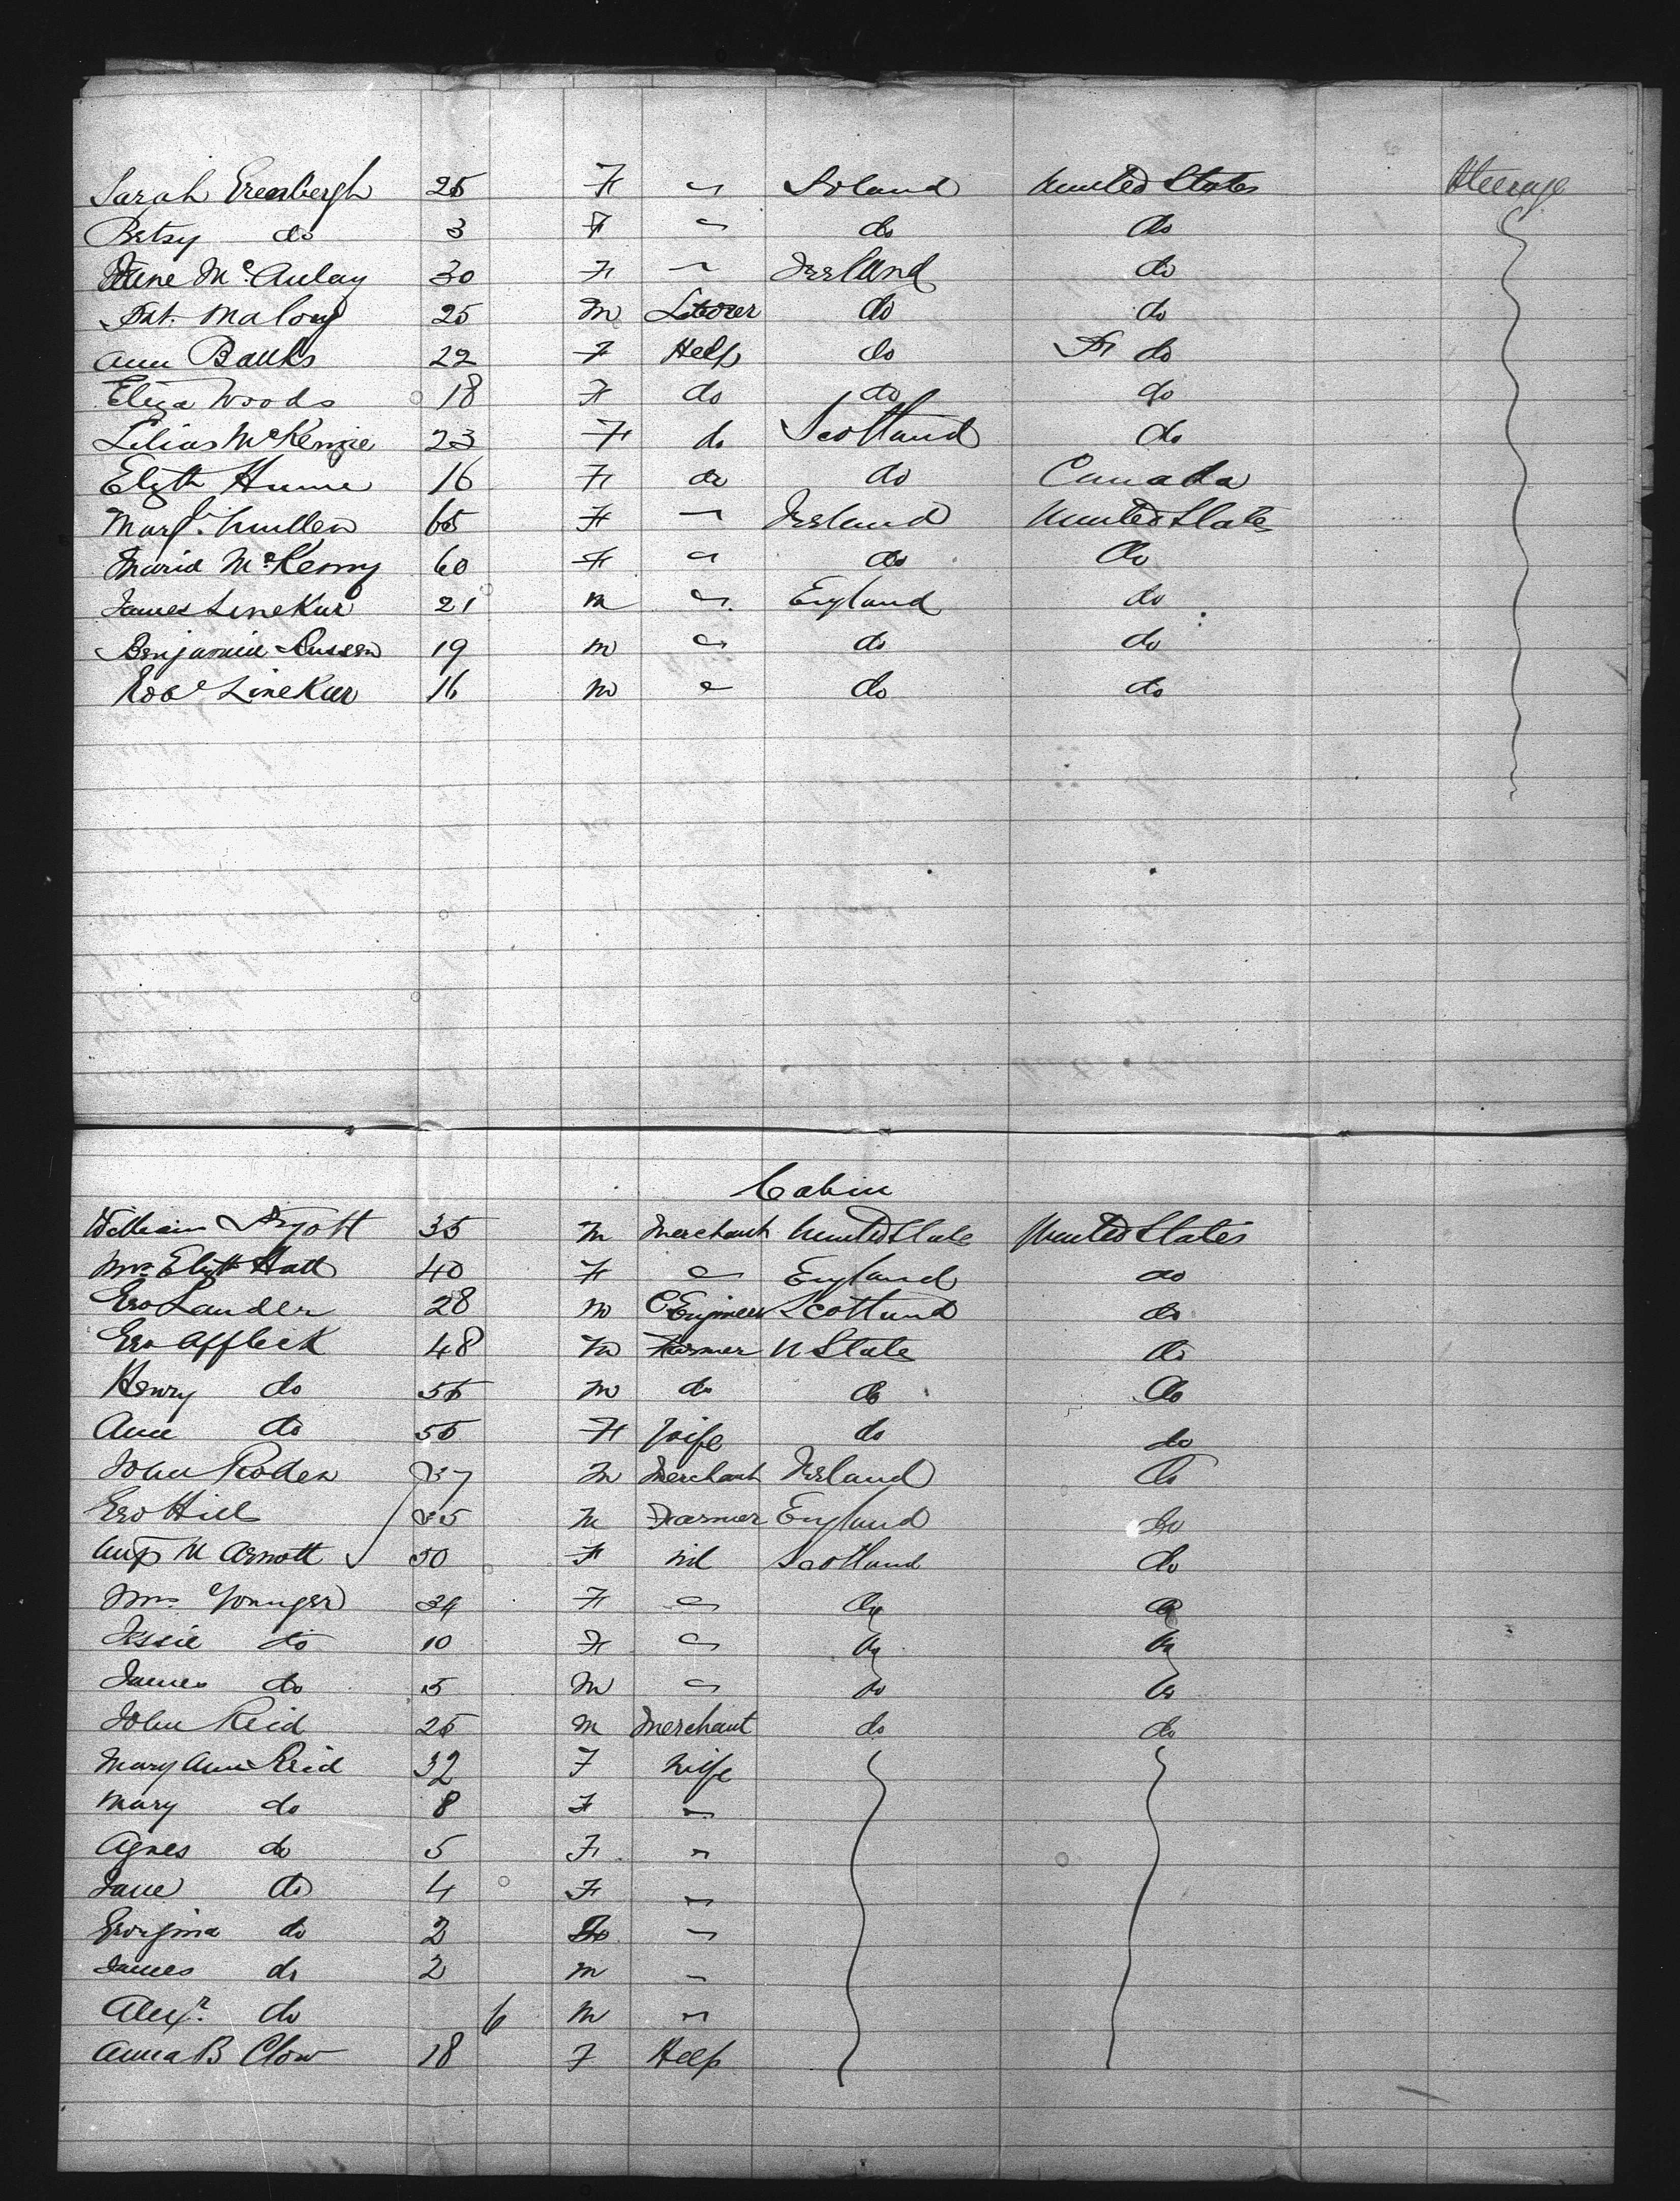 Sarah Greenbergh 25 F " Poland United States Steerage
Betsy do 3 F " do do
Jane McAulay 30 F " Ireland do
Pat. Malony 25 m Laborer do do
Ann Banks 22 F Help do do
Eliza Woods 18 F do do do
Lilias McKenzie 23 F do Scotland do
Elizth Hume 16 F do do Canada
Margt. Mullen 65 F " Ireland United States
Maria McKenny 60 F " do do
James Linekar 21 m " England do
Benjamin 19 m " do do
Robt Linekar 16 m " do do
Cabin
William 35 m Merchant United State United States
Mrs Elizth Hall 40 F " England do
Geo Lauder 28 m C Engineer Scotland do
Geo Affleck 48 m Farmer U State do
Henry do 56 m do do do
Ann do 55 F Wife do do
John Roden 37 m Merchant Ireland do
Geo Hill 35 m Farmer England do
Arnott 50 F nil Scotland do
Mrs Younger 34 F " do do
Jessie do 10 F " do do
James do 5 m " do do
John Reid 25 m Merchant do do
Mary Ann Reid 32 F Wife
Mary do 8 F "
Agnes do 5 F "
Jane do 4 F "
Georgina do 2 F "
James do 2 m "
Alexr. do 6 m "
Anna B Clow 18 F Help